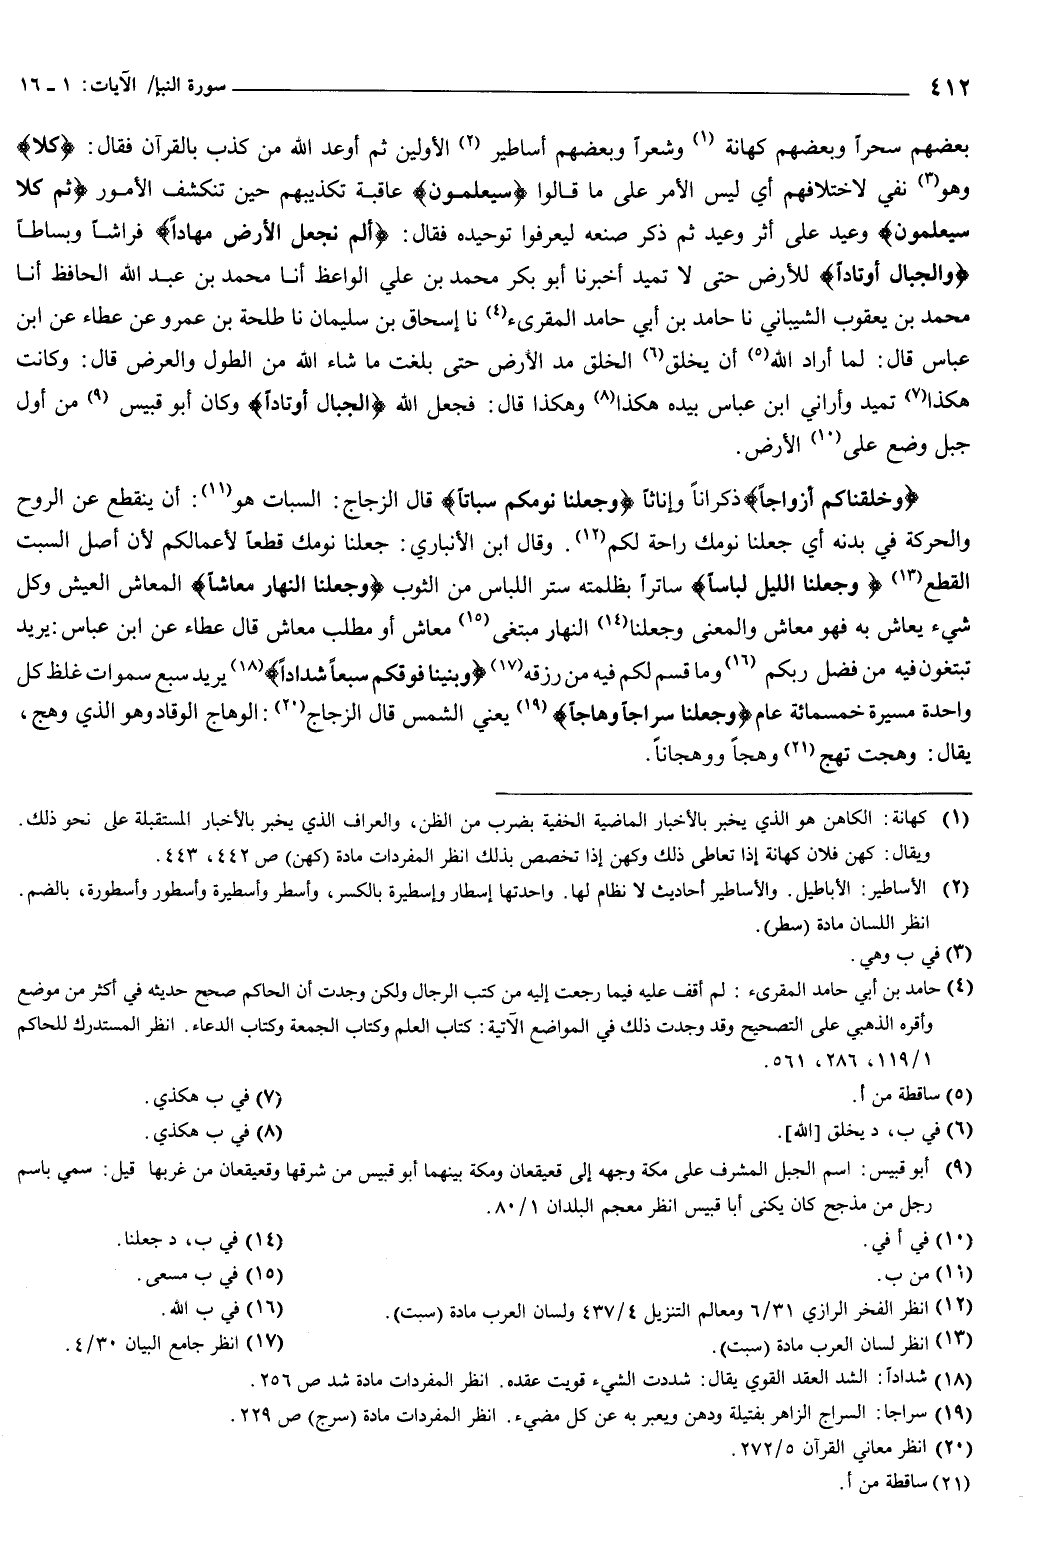 ٤١٢ سورة النبإ/ الآيات: ١ ـ ١٦
بعضهم سحراً وبعضهم كهانة (١) وشعراً وبعضهم أساطير (٢) الأولين ثم أوعد الله من كذب بالقرآن فقال: ﴿كلا﴾
وهو(٣) نفي لاختلافهم أي ليس الأمر على ما قالوا ﴿سيعلمون﴾ عاقبة تكذيبهم حين تنكشف الأمور ﴿ثم كلا
سيعلمون﴾ وعيد على أثر وعيد ثم ذكر صنعه ليعرفوا توحيده فقال: ﴿ألم نجعل الأرض مهاداً﴾ فراشاً وبساطاً
﴿والجبال أوتاداً﴾ للأرض حتى لا تميد أخبرنا أبو بكر محمد بن علي الواعظ أنا محمد بن عبد الله الحافظ أنا
محمد بن يعقوب الشيباني نا حامد بن أبي حامد المقرىء(٤) نا إسحاق بن سليمان نا طلحة بن عمرو عن عطاء عن ابن
عباس قال: لما أراد الله(٥) أن يخلق(٦) الخلق مد الأرض حتى بلغت ما شاء الله من الطول والعرض قال: وكانت
هكذا(٧) تميد وأراني ابن عباس بيده هكذا(٨) وهكذا قال: فجعل الله ﴿الجبال أوتاداً﴾ وكان أبو قبيس (٩) من أول
جبل وضع على(١٠) الأرض.
﴿وخلقناكم أزواجاً﴾ ذكراناً وإناثاً ﴿وجعلنا نومكم سباتاً﴾ قال الزجاج: السبات هو(١١): أن ينقطع عن الروح
والحركة في بدنه أي جعلنا نومك راحة لكم(١٢). وقال ابن الأنباري: جعلنا نومك قطعاً لأعمالكم لأن أصل السبت
القطع(١٣) ﴿ وجعلنا الليل لباساً﴾ ساتراً بظلمته ستر اللباس من الثوب ﴿وجعلنا النهار معاشاً﴾ المعاش العيش وكل
شيء يعاش به فهو معاش والمعنى وجعلنا(١٤) النهار مبتغى(١٥) معاش أو مطلب معاش قال عطاء عن ابن عباس: يريد
تبتغون فيه من فضل ربكم (١٦) وما قسم لكم فيه من رزقه(١٧) ﴿وبنينا فوقكم سبعاً شداداً﴾(١٨) يريد سبع سموات غلظ كل
واحدة مسيرة خمسمائة عام ﴿وجعلنا سراجاً وهاجاً﴾ (١٩) يعني الشمس قال الزجاج(٢٠): الوهاج الوقاد وهو الذي وهج،
يقال: وهجت تهج (٢١) وهجاً ووهجاناً.
(١) كهانة: الكاهن هو الذي يخبر بالأخبار الماضية الخفية بضرب من الظن، والعراف الذي يخبر بالأخبار المستقبلة على نحو ذلك.
ويقال: كهن فلان كهانة إذا تعاطى ذلك وكهن إذا تخصص بذلك انظر المفردات مادة (كهن) ص ٤٤٢، ٤٤٣.
(٢) الأساطير: الأباطيل. والأساطير أحاديث لا نظام لها. واحدتها إسطار وإسطيرة بالكسر، وأسطر وأسطيرة وأسطور وأسطورة، بالضم.
انظر اللسان مادة (سطر).
(٣) في ب وهي.
(٤) حامد بن أبي حامد المقرىء : لم أقف عليه فيما رجعت إليه من كتب الرجال ولكن وجدت أن الحاكم صحح حديثه في أكثر من موضع
وأقره الذهبي على التصحيح وقد وجدت ذلك في المواضع الآتية: كتاب العلم وكتاب الجمعة وكتاب الدعاء. انظر المستدرك للحاكم
١/١١٩، ٢٨٦، ٥٦١.
(٥) ساقطة من أ. (٧) في ب هكذي.
(٦) في ب، د يخلق [الله]. (٨) في ب هكذي.
(٩) أبو قبيس: اسم الجبل المشرف على مكة وجهه إلى قعيقعان ومكة بينهما أبو قبيس من شرقها وقعيقعان من غربها قيل: سمي باسم
رجل من مذحج كان يكنى أبا قبيس انظر معجم البلدان ١/ ٨٠.
(١٠) في أ في. (١٤) في ب، د جعلنا.
(١١) من ب. (١٥) في ب مسعى.
(١٢) انظر الفخر الرازي ٦/٣١ ومعالم التنزيل ٤٣٧/٤ ولسان العرب مادة (سبت). (١٦) في ب الله.
(١٣) انظر لسان العرب مادة (سبت). (١٧) انظر جامع البيان ٤/٣٠.
(١٨) شداداً: الشد العقد القوي يقال: شددت الشيء قويت عقده. انظر المفردات مادة شد ص ٢٥٦.
(١٩) سراجا: السراج الزاهر بفتيلة ودهن ويعبر به عن كل مضيء. انظر المفردات مادة (سرج) ص ٢٢٩.
(٢٠) انظر معاني القرآن ٢٧٢/٥.
(٢١) ساقطة من أ.